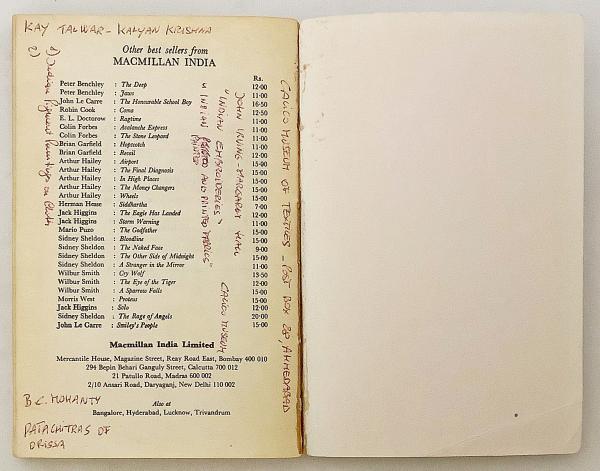 KAY TALWAR - KALYAN KRISHNA
1) Indian Pigment Paintings on Cloth
2)
Other best sellers from
MACMILLAN INDIA
Rs.
Peter Benchley : The Deep 12·00
Peter Benchley : Jaws 11·00
John Le Carre : The Honourable School Boy 16·50
Robin Cook : Coma 12·50
E. L. Doctorow : Ragtime 11·00
Colin Forbes : Avalanche Express 11·00
Colin Forbes : The Stone Leopard 11·00
Brian Garfield : Hopscotch 11·00
Brian Garfield : Recoil 12·00
Arthur Hailey : Airport 15·00
Arthur Hailey : The Final Diagnosis 15·00
Arthur Hailey : In High Places 15·00
Arthur Hailey : The Money Changers 15·00
Arthur Hailey : Wheels 15·00
Herman Hesse : Siddhartha 7·00
Jack Higgins : The Eagle Has Landed 12·00
Jack Higgins : Storm Warning 11·00
Mario Puzo : The Godfather 15·00
Sidney Sheldon : Bloodline 15·00
Sidney Sheldon : The Naked Face 9·00
Sidney Sheldon : The Other Side of Midnight 15·00
Sidney Sheldon : A Stranger in the Mirror 11·00
Wilbur Smith : Cry Wolf 13·50
Wilbur Smith : The Eye of the Tiger 12·00
Wilbur Smith : A Sparrow Falls 15·00
Morris West : Proteus 15·00
Jack Higgins : Solo 12·00
Sidney Sheldon : The Rage of Angels 20·00
John Le Carre : Smiley's People 15·00
JOHN IRWING - MARGARET HALL
"INDIAN EMBROIDERIES"
" INDIAN PAINTED AND PRINTED FABRICS"
CALICO MUSEUM
CALICO MUSEUM OF TEXTILES - POST BOX 28, AHMEDABAD
Macmillan India Limited
Mercantile House, Magazine Street, Reay Road East, Bombay 400 010
294 Bepin Behari Ganguly Street, Calcutta 700 012
21 Patullo Road, Madras 600 002
2/10 Ansari Road, Daryaganj, New Delhi 110 002
Also at
Bangalore, Hyderabad, Lucknow, Trivandrum
B.C. MOHANTY
PATACHITRAS OF
ORISSA